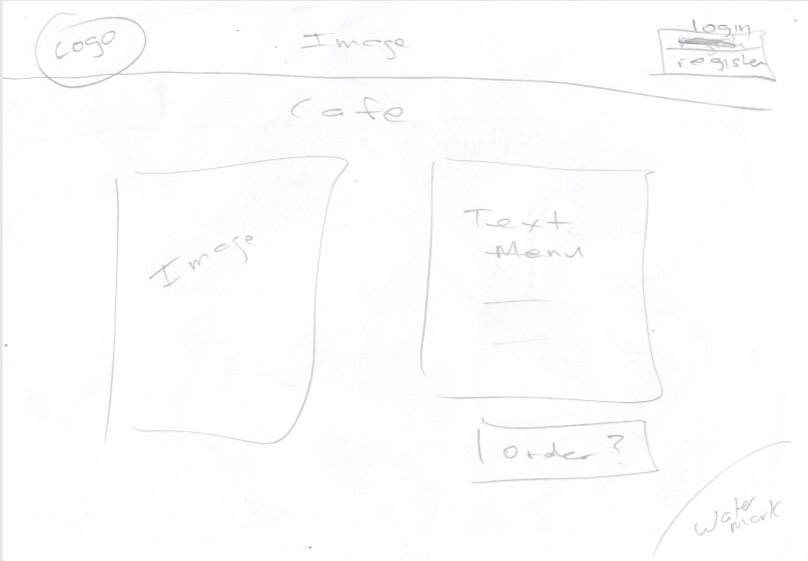 Logo
Image
login
register
Cafe
Image
Text
Menu
order?
water
mark